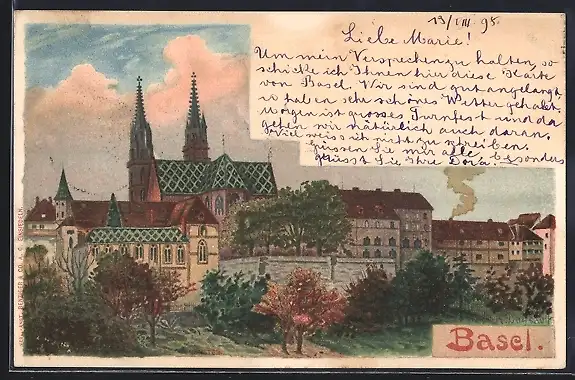 13/VIII. 98.
Liebe Marie!
Um mein Versprechen zu halten, so
schicke ich Ihnen hier diese Karte
von Basel. Wir sind gut angelangt
u haben sehr schönes Wetter gehabt.
Morgen ist grosses Turnfest und da
gehen wir natürlich auch daran.
Soviel weiss ich nicht zu schreiben.
Grüssen Sie mir alle besonders
grüsst Sie Ihre Dora.
Basel.